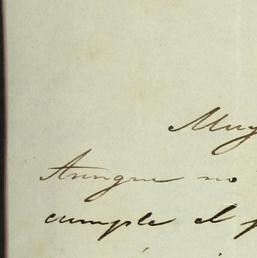 Muy
Aunque no
cumple el p